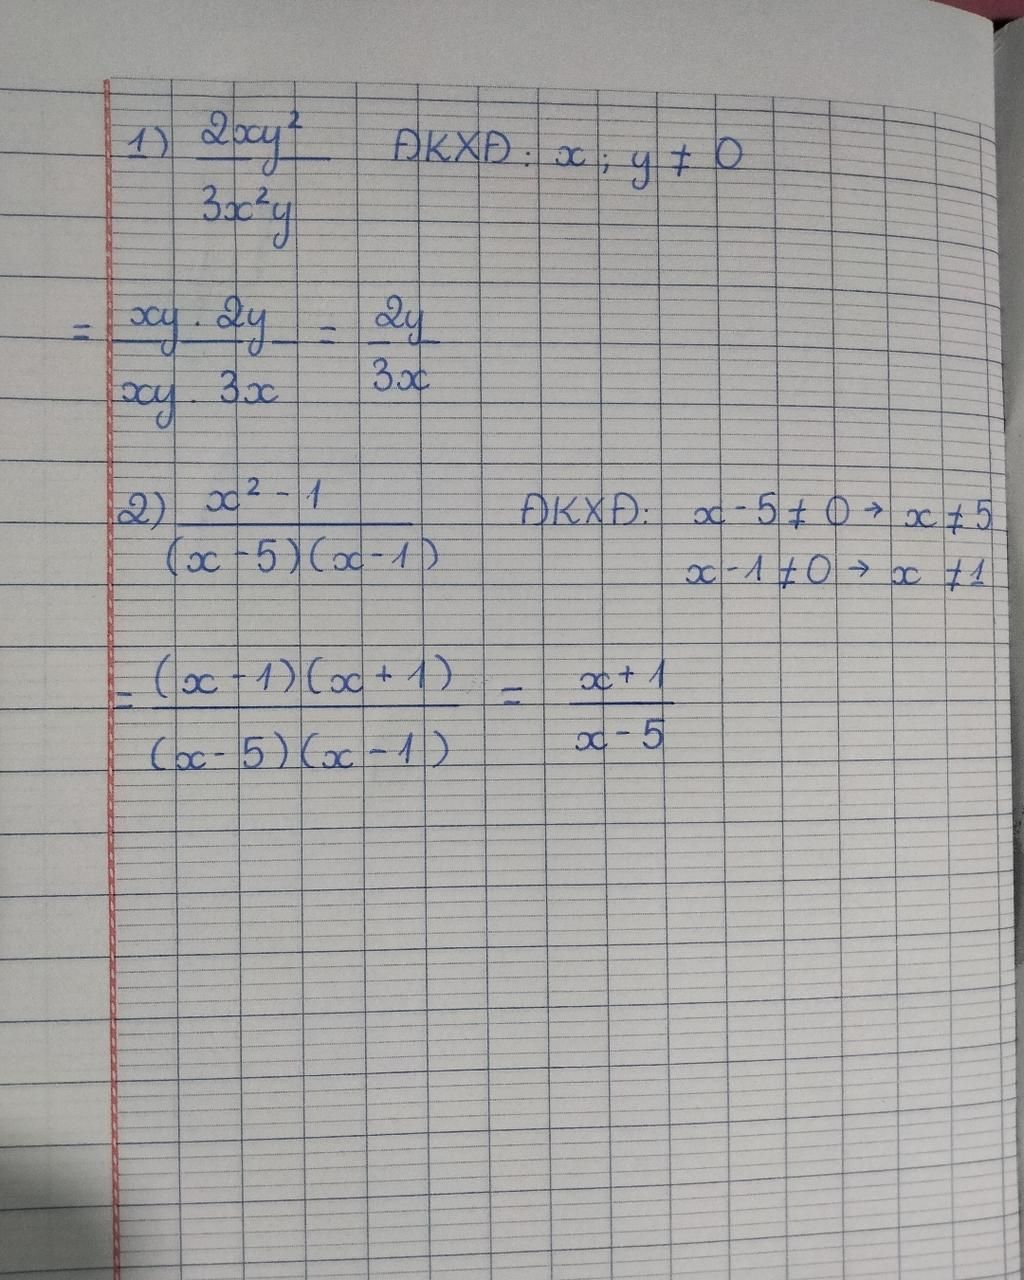 1) 2xy² / 3x²y ĐKXĐ: x; y ≠ 0
= xy . 2y / xy . 3x = 2y / 3x
2) x² - 1 / (x - 5)(x - 1) ĐKXĐ: x - 5 ≠ 0 → x ≠ 5
x - 1 ≠ 0 → x ≠ 1
= (x - 1)(x + 1) / (x - 5)(x - 1) = x + 1 / x - 5